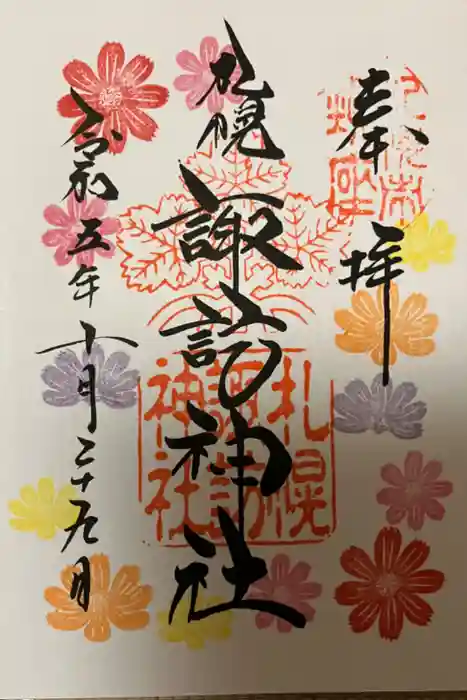 奉拝
札幌
諏訪神社
令和五年十月二十九日
札幌
諏訪
神社